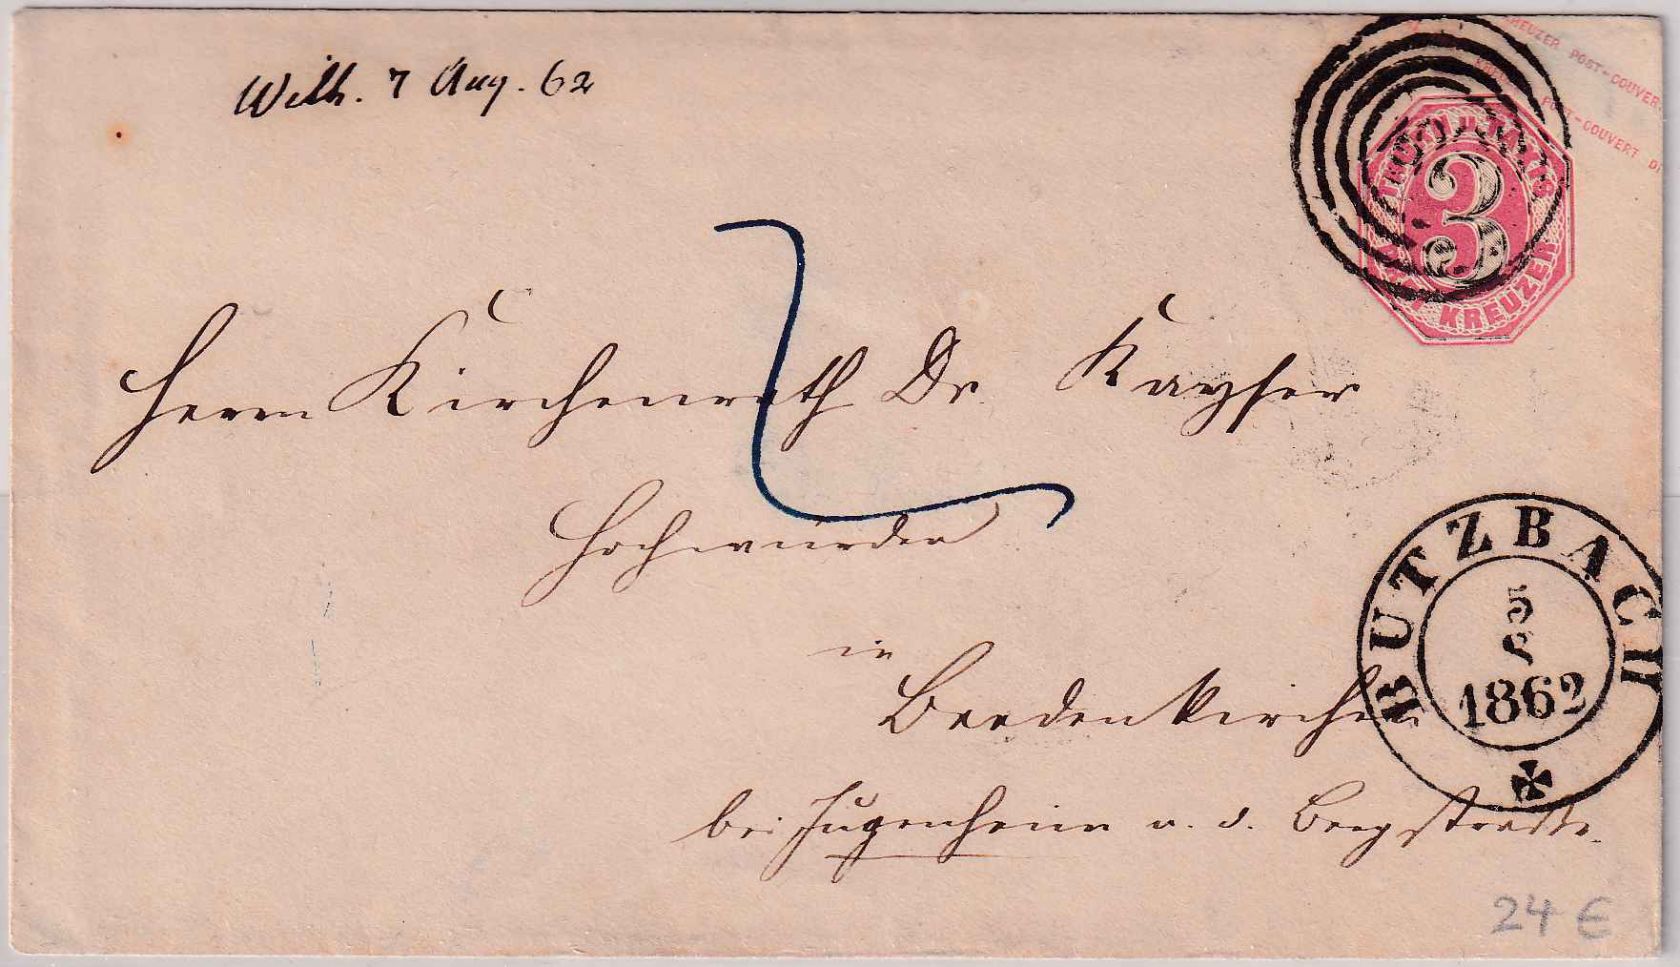 Wilh. 7 Aug. 62
KREUZER POST-COUVERT
POST-COUVERT
THURN u. TAXIS
3
KREUZER
Herrn Kirchenrath Dr Kayser
Hochwürden
in
Beedenkirchen
bei Jugenheim a. d. Bergstraße.
BUTZBACH
5
8
1862
24 €